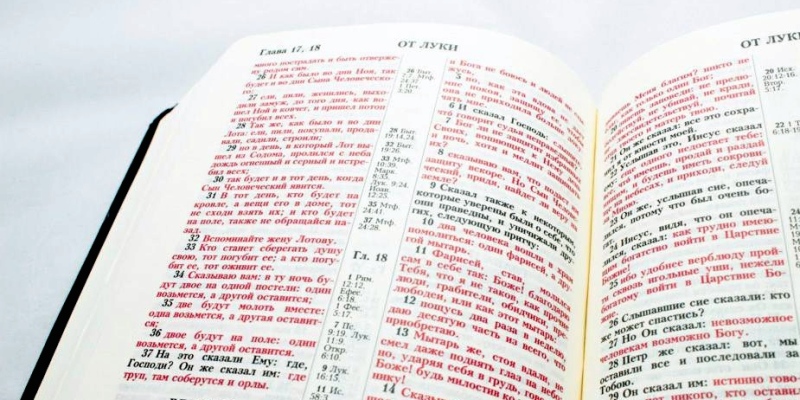 Глава 17, 18
ОТ ЛУКИ
много пострадать и быть отверже-
ну родом сим.
26 И как было во дни Ноя, так
будет и во дни Сына Человеческо-
27 ели, пили, женились, выхо-
дили замуж, до того дня, как во-
шел Ной в ковчег, и пришел потоп
и погубил всех.
28 Так же, как было и во дни
Лота: ели, пили, покупали, прода-
вали, садили, строили;
29 но в день, в который Лот вы-
шел из Содома, пролился с неба
дождь огненный и серный и истре-
бил всех;
30 так будет и в тот день, когда
Сын Человеческий явится.
31 В тот день, кто будет на
кровле, а вещи его в доме, тот
не сходи взять их; и кто будет
на поле, также не обращайся на-
зад.
32 Вспоминайте жену Лотову.
33 Кто станет сберегать душу
свою, тот погубит ее; а кто погу-
бит ее, тот оживит ее.
34 Сказываю вам: в ту ночь бу-
дут двое на одной постели: один
возьмется, а другой оставится;
35 две будут молоть вместе:
одна возьмется, а другая оставит-
ся;
36 двое будут на поле: один
возьмется, а другой оставится.
37 На это сказали Ему: где,
Господи? Он же сказал им: где
труп, там соберутся и орлы.
26 Быт.
28 Быт.
19:24.
32 Быт.
19:26.
33 Мтф.
10:39.
Марк.
8:35.
Лук. 9:24.
Иоан.
12:25.
35 Мтф.
24:41.
37 Мтф.
24:28.
Гл. 18
1 Рим.
12:12.
Ефес.
6:18.
1 Фес.
5:17.
7 Пс.
9:19. Лук.
11:9.
Откр.
6:10.
9 Лук.
16:15.
11 Ис.
58:3
и Бога не боюсь и людей не
жусь,
5 но, как эта вдова не
мне покоя, защищу ее, чтобы
она не приходила больше доку-
чать мне.
6 И сказал Господь:
что говорит судья неправедный?
7 Бог ли не защитит избранных
Своих, вопиющих к Нему день
и ночь, хотя и медлит защищать
их?
8 сказываю вам, что подаст им
защиту вскоре. Но Сын Челове-
ческий, придя, найдет ли веру на
земле?
9 Сказал также к некоторым,
которые уверены были о себе, что
они праведны, и уничижали дру-
гих, следующую притчу:
10 два человека вошли в храм
помолиться: один фарисей, а дру-
гой мытарь.
11 Фарисей, став, молился
сам в себе так: Боже! благодарю
Тебя, что я не таков, как прочие
люди, грабители, обидчики, пре-
любодеи, или как этот мытарь:
12 пощусь два раза в неделю,
даю десятую часть из всего, что
приобретаю.
13 Мытарь же, стоя вдали, не
смел даже поднять глаз на небо;
но, ударяя себя в грудь, говорил:
Боже! будь милостив ко мне греш-
нику!
14 Сказываю
ОТ ЛУКИ
Меня благим? никто не
как только один Бог;
заповеди: не прелю-
убивай, не кради,
почитай
матерь твою.
21 Он же сказал: все это сохра-
от юности моей.
22 Услышав это, Иисус сказал
ему: еще одного недостает тебе:
все, что имеешь, продай и раздай
нищим, и будешь иметь сокрови-
ще на небесах, и приходи, следуй
23 Он же, услышав сие, опеча-
лился, потому что был очень бо-
гат.
24 Иисус, видя, что он опеча-
лился, сказал: как трудно имею-
щим богатство войти в Царствие
Божие!
25 ибо удобнее верблюду прой-
ти сквозь игольные уши, нежели
богатому войти в Царствие Бо-
жие.
26 Слышавшие сие сказали: кто
же может спастись?
27 Но Он сказал: невозможное
человекам возможно Богу.
28 Петр же сказал: вот, мы
оставили все и последовали за
Тобою.
29 Он сказал им: истинно гово-
20 Исх.
20:12-16.
Втор.
5:17.